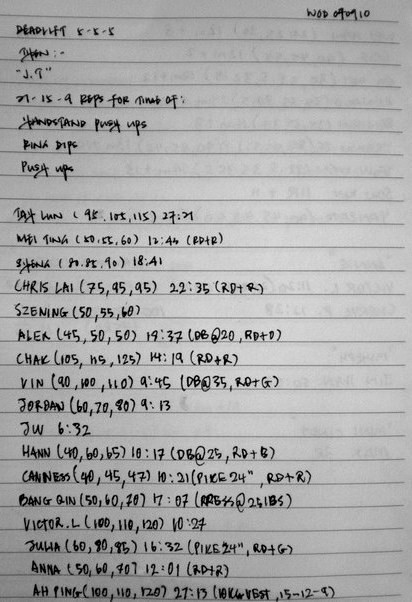 WOD 090910
DEADLIFT 5-5-5
THEN:-
"J.T"
21-15-9 REPS FOR TIME OF:
HANDSTAND PUSH UPS
RING DIPS
PUSH UPS
TAH LUN (95, 105, 115) 27:21
MEI TING (50, 55, 60) 12:44 (RD+R)
(80, 85, 90) 18:41
CHRIS LAI (75, 95, 95) 22:35 (RD+R)
SZENING (50, 55, 60)
ALEX (45, 50, 50) 19:37 (DB@20, RD+O)
CHAK (105, 115, 125) 14:19 (RD+R)
VIN (90, 100, 110) 9:45 (DB@35, RD+G)
JORDAN (60, 70, 80) 9:13
JW 6:32
HANN (40, 60, 65) 10:17 (DB@25, RD+B)
CANNESS (40, 45, 47) 10:21 (PIKE 24", RD+R)
BANG QIN (50, 60, 70) 17:07 (PRESS@25LBS)
VICTOR.L (100, 110, 120) 10:27
JULIA (60, 80, 85) 16:32 (PIKE 24", RD+G)
ANNA (50, 60, 70) 12:01 (RD+R)
AH PING (100, 110, 120) 27:13 (10KG VEST, 15-12-9)